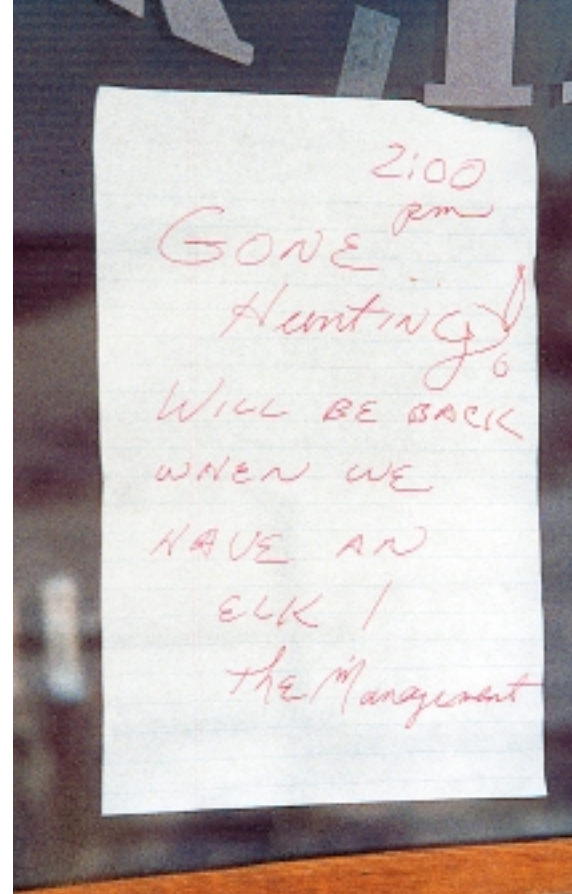 2:00
pm
GONE
HuntiNG!
WILL BE BACK
WHEN WE
HAVE AN
ELK!
the Management